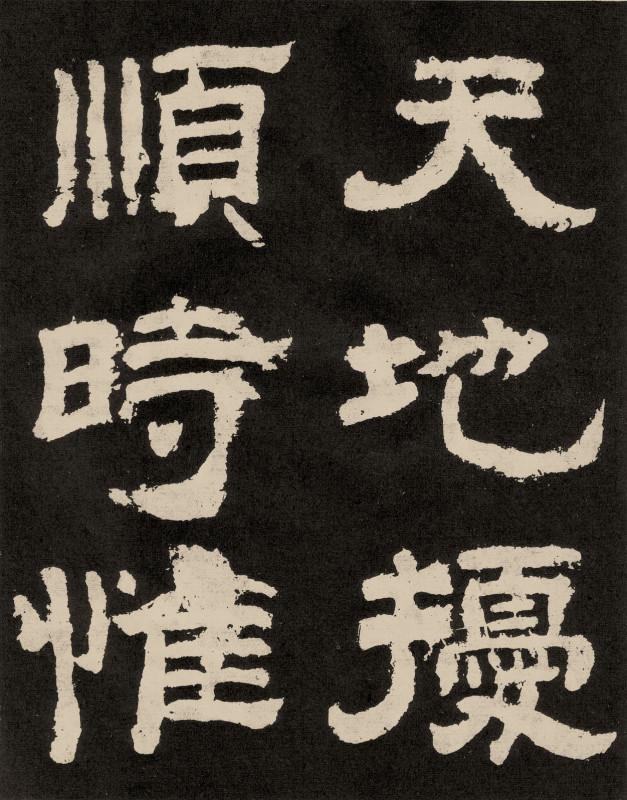 天地擾
順時惟